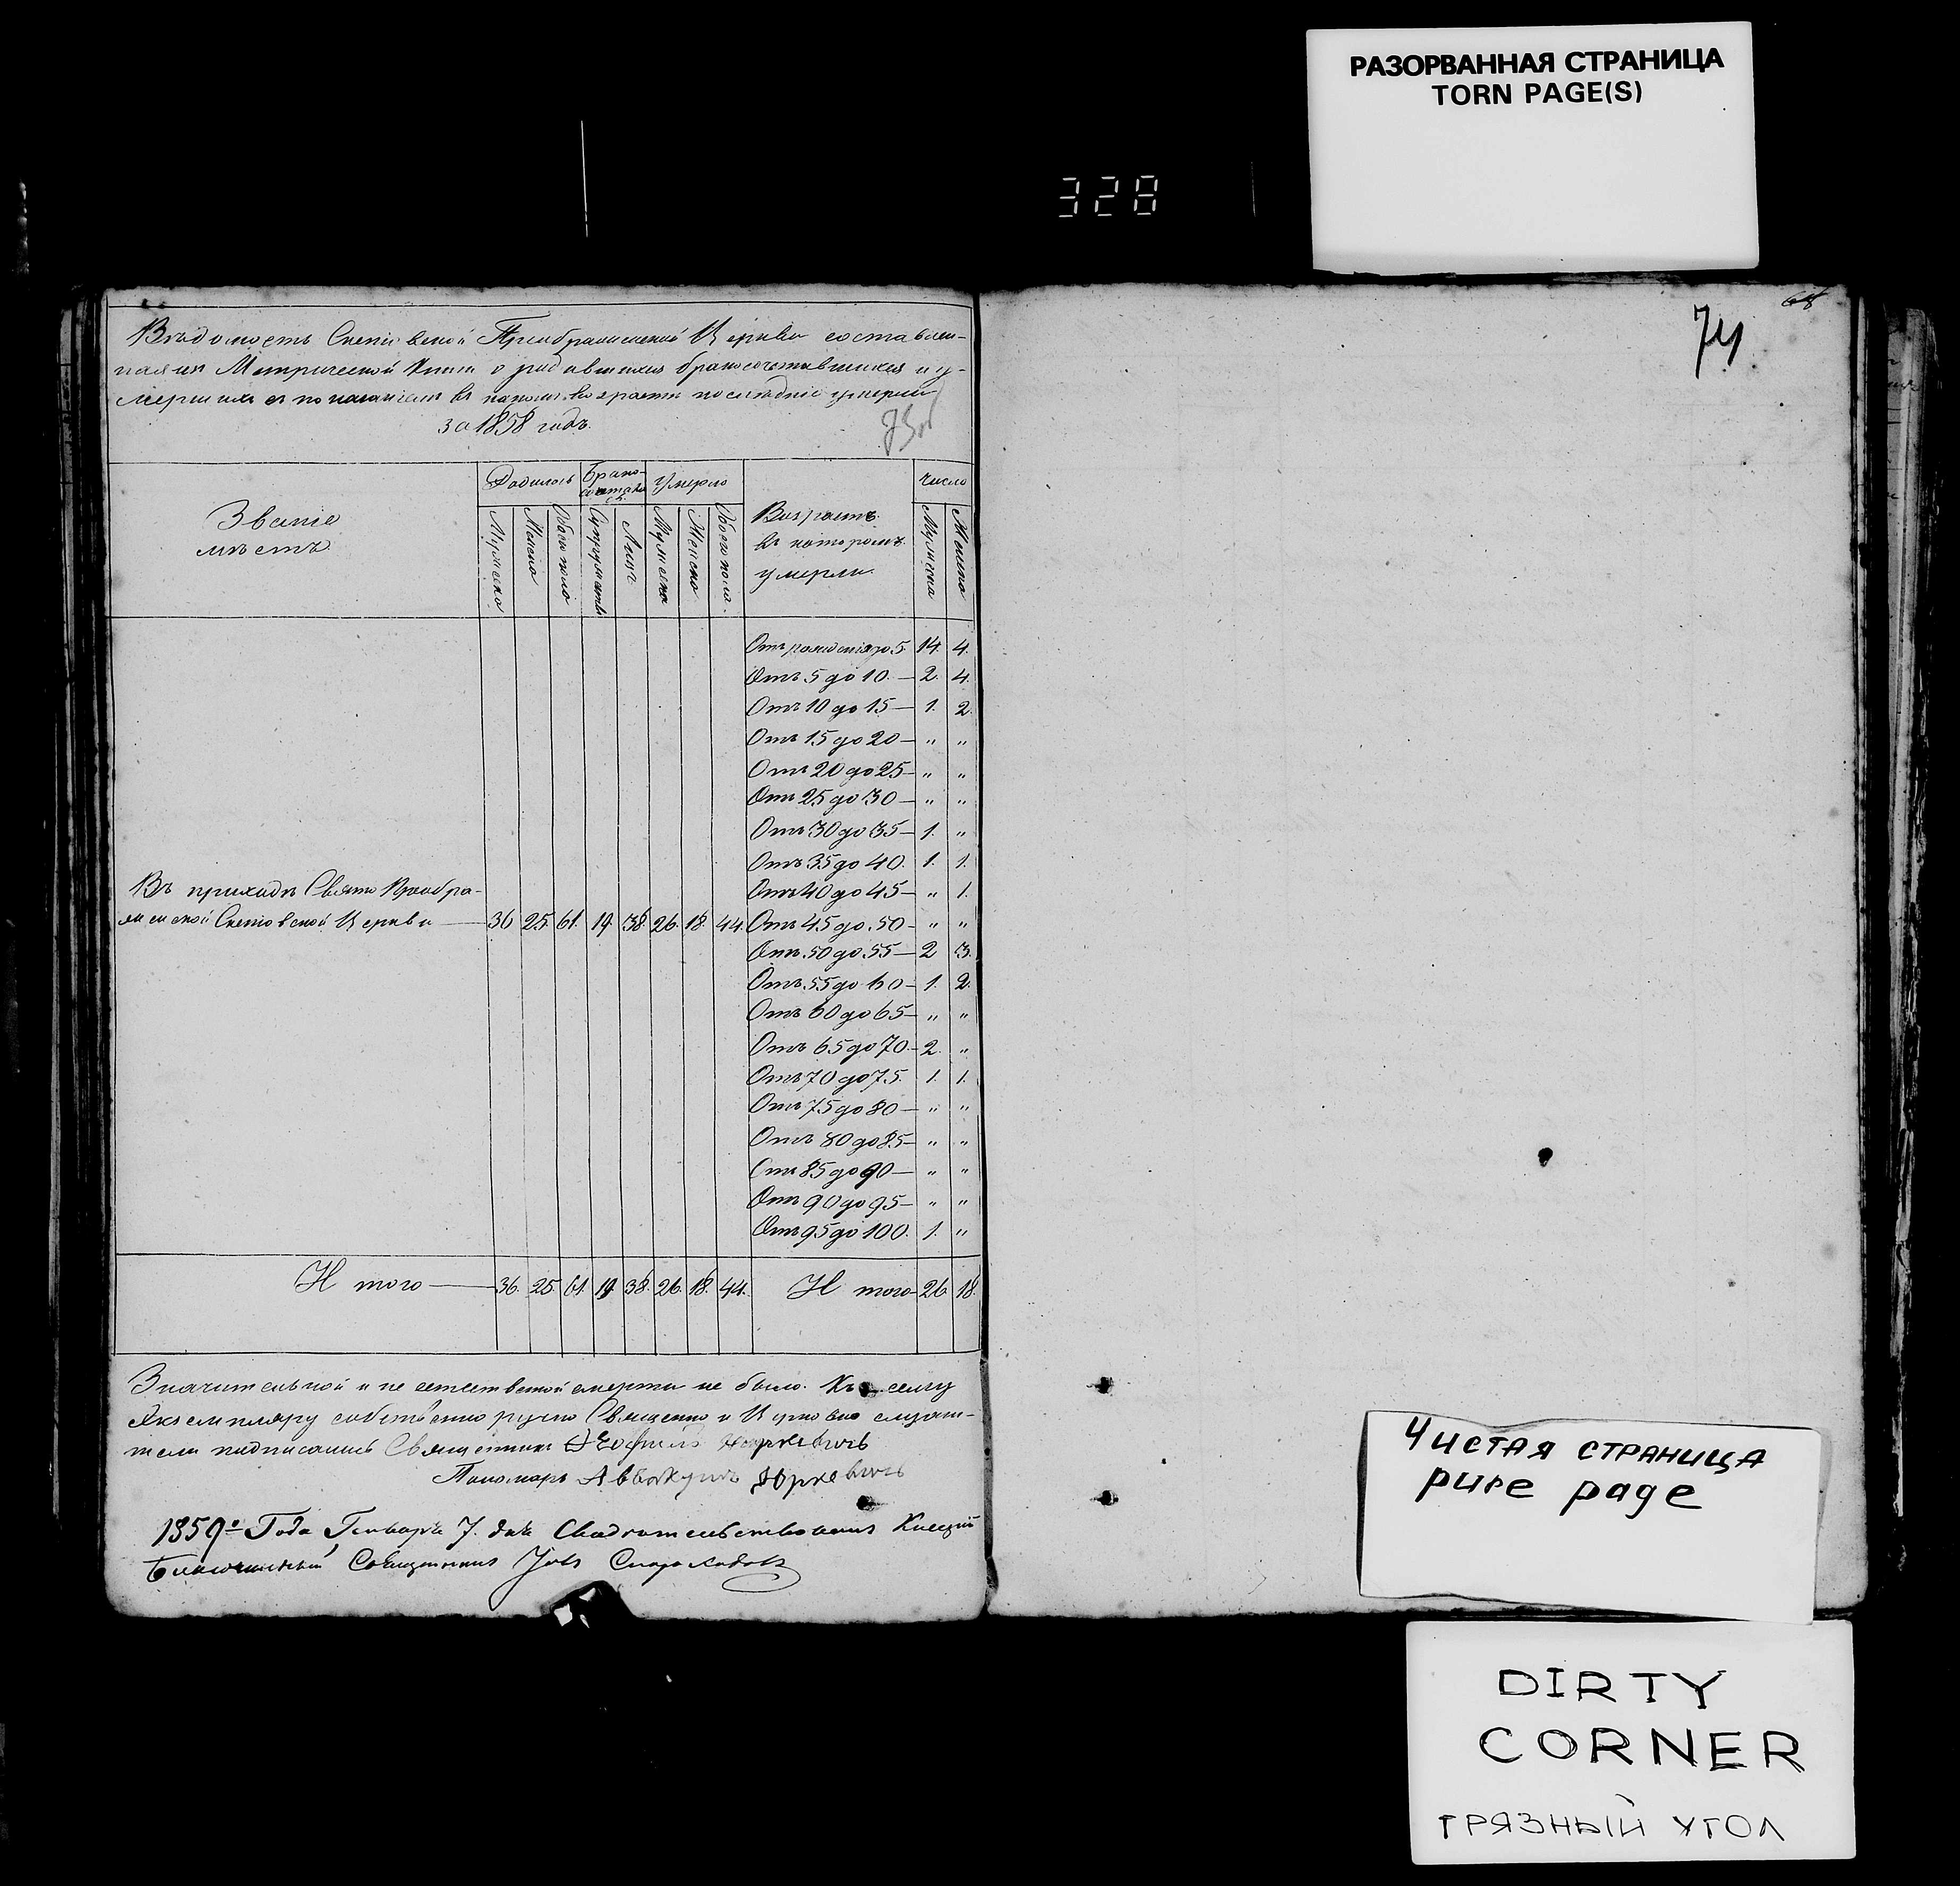 РАЗОРВАННАЯ СТРАНИЦА
TORN PAGE(S)
328
68
74
Вѣдомость Преображенской Церкви составлен-
ная изъ Метрической Книги о родившихся бракосочетавшихся и у-
мершихъ съ показаніемъ въ какомъ возрастѣ послѣдніе умерли
за 1858 годъ.
Званіе мѣстъ
Родилось
Мужеска
Женска
Обоего пола
Брако-
сочета
Супружествъ
Лицъ
Умерло
Мужеска
Женска
Обоего пола.
Возрастъ
въ которомъ
умерли
Число
Мужеска
Женска
Отъ рожденія до 5. 14. 4.
Отъ 5 до 10. — 2. 4.
Отъ 10 до 15 — 1. 2.
Отъ 15 до 20 — " "
Отъ 20 до 25 — " "
Отъ 25 до 30 — " "
Отъ 30 до 35 — 1. "
Отъ 35 до 40. 1. 1.
Отъ 40 до 45 — " 1.
Въ приходѣ Свято Преобра-
женской Церкви — 36 25. 61. 19. 38. 26. 18. 44. Отъ 45 до 50 — " "
Отъ 50 до 55 — 2 3.
Отъ 55 до 60 — 1. 2.
Отъ 60 до 65 — " "
Отъ 65 до 70. — 2. "
Отъ 70 до 75. 1. 1.
Отъ 75 до 80 — " "
Отъ 80 до 85 — " "
Отъ 85 до 90 — " "
Отъ 90 до 95 — " "
Отъ 95 до 100. 1. "
И того — 36. 25. 61. 19. 38. 26. 18. 44. И того — 26 18.
Значительной и не естественой смерти не было. Къ сему
Экземпляру собственно ручно Священно и Церковно служи-
тели подписались Священникъ
Пономарь Аввакумъ Юркевичъ
1859го Года Генваря 7. дня Свидѣтельствовалъ
Благочинный Священникъ Іовъ
Чистая страница
pure page
DIRTY
CORNER
ГРЯЗНЫЙ УГОЛ